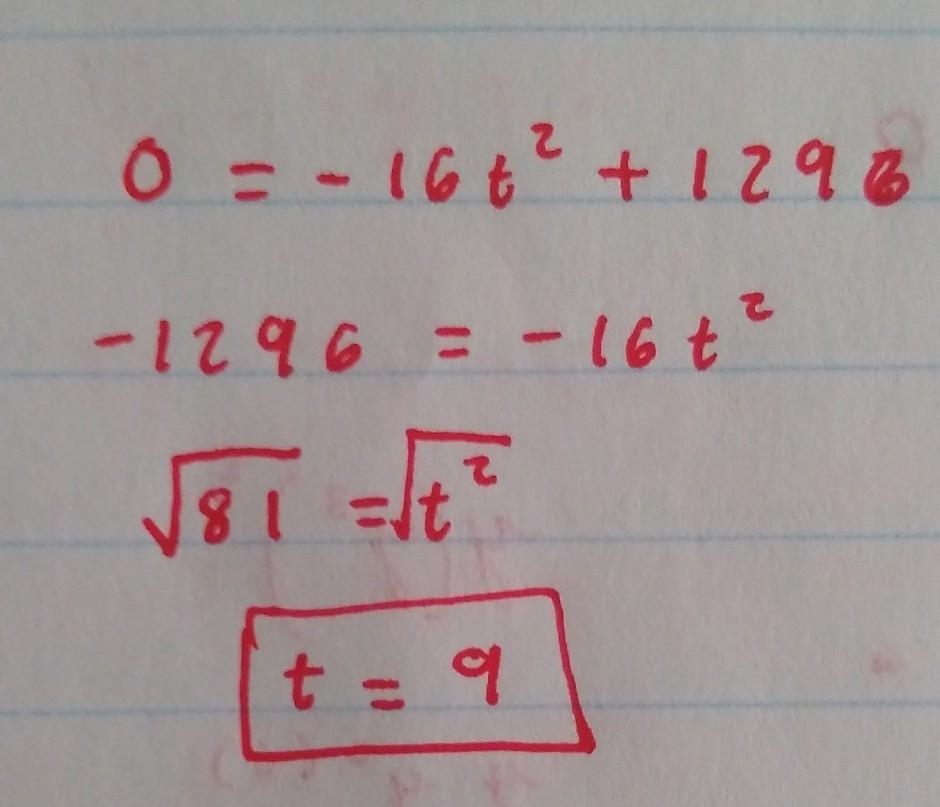 0 = - 16t² + 1296
-1296 = -16t²
√81 = √t²
t = 9